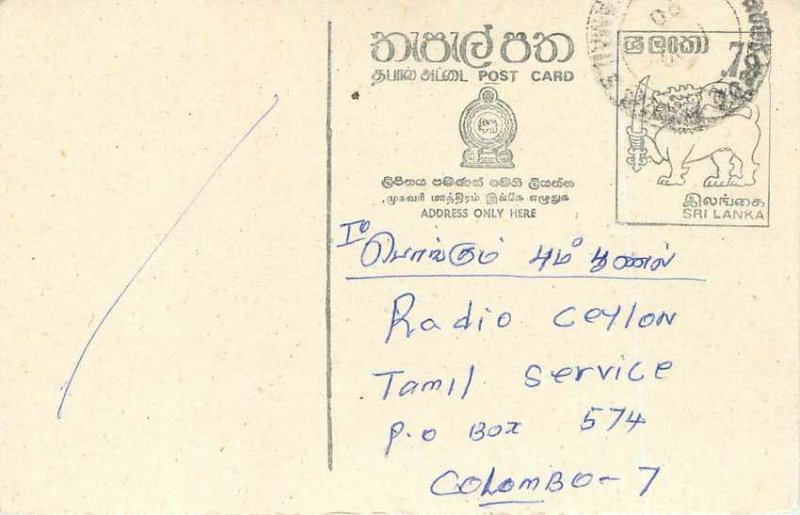 තැපැල් පත
தபால் அட்டை POST CARD
ශ්‍රී ලංකා
ලිපිනය පමණක් මෙහි ලියන්න
முகவரி மாத்திரம் இங்கே எழுதுக
ADDRESS ONLY HERE
இலங்கை
SRI LANKA
To
பொங்கும் பூம் புனல்
Radio Ceylon
Tamil Service
P.O Box 574
COLOMBO-7